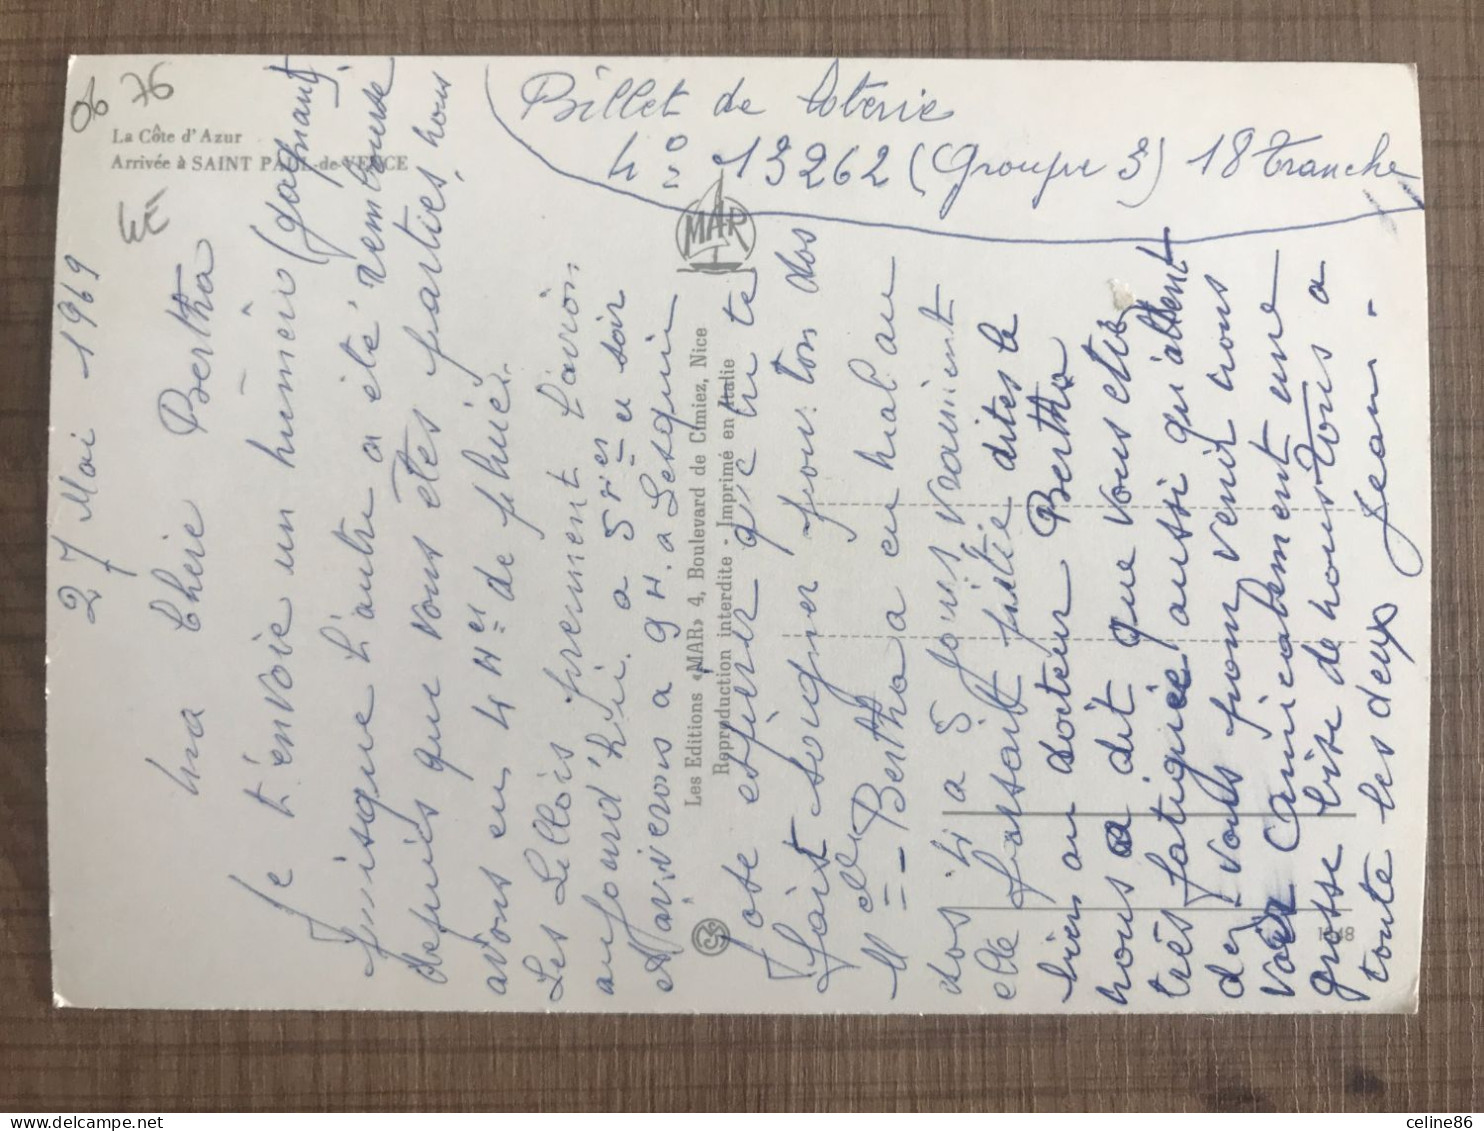 06 76
La Côte d'Azur
Arrivée à SAINT PAUL-de-VENCE
Billet de loterie
N° 13262 (Groupe 3) 18 tranche
27 Mai 1969
Ma Chérie Bertha
Je t'envoie un numéro (gagnant)
puisque l'autre a été remboursé
depuis que vous êtes parties, nous
avons eu 4 H es de pluie.
Les Lillois prennent l'avion
aujourd'hui. a 5 H es du soir
et arriverons a 9 H. a Lesquin
J'ose espérer que tu te
fait soigner pour ton dos
Melle Bertha a eu mal au
dos 4 a 5 jours vraiment
elle faisait pitié dites le
bien au docteur Bertha
nous a dit que vous etiez
très fatiguée aussi qu'attent
dez vous pour venir nous
voir Amicalement une
grosse bise de nous tous a
toute les deux Jean.
MAR
Les Editions «MAR» 4, Boulevard de Cimiez, Nice
Reproduction interdite - Imprimé en Italie
celine86